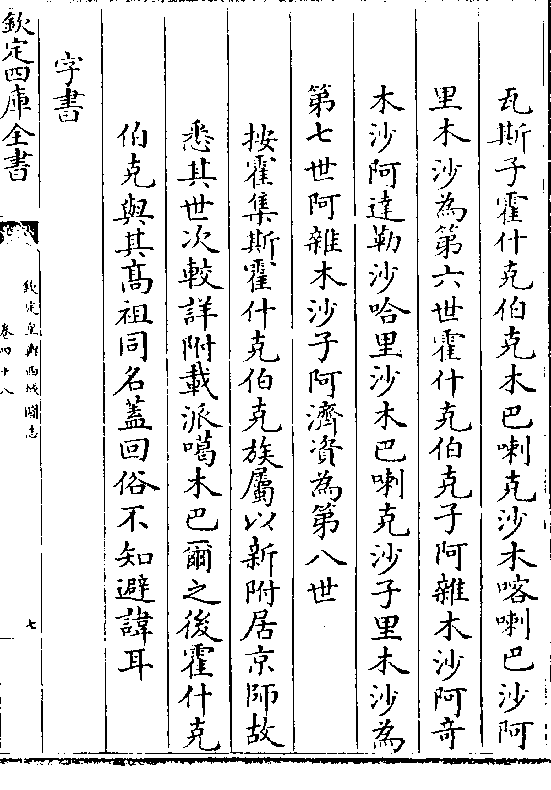 瓦斯子霍什克伯克木巴喇克沙木喀喇巴沙阿
里木沙為第六世霍什克伯克子阿雜木沙阿奇
木沙阿達勒沙哈里沙木巴喇克沙子里木沙為
第七世阿雜木沙子阿濟資為第八世
按霍集斯霍什克伯克族屬以新附居京師故
悉其世次較詳附載派噶木巴爾之後霍什克
伯克與其髙祖同名蓋回俗不知避諱耳
字書
欽定四庫全書
欽定皇輿西域圖志
卷四十八
七